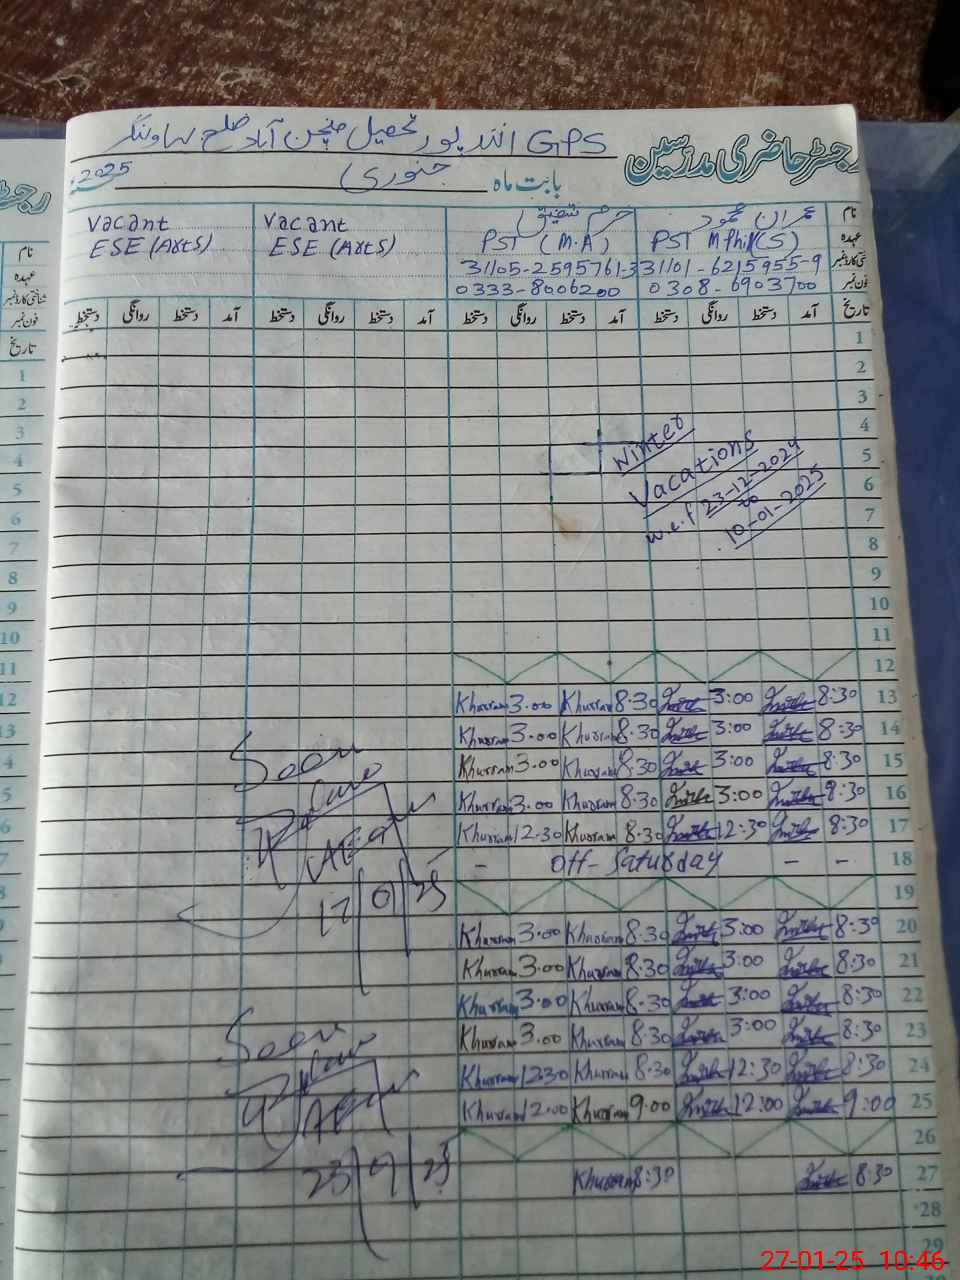 رجسٹر حاضری مدرسین
GPS انند پور تحصیل منچن آباد ضلع بہاولنگر
بابت ماہ جنوری 2025
نام عمران محمود خرم شفیق Vacant Vacant
عہدہ PST M.Phil(S) PST (M.A) ESE (Arts) ESE (Arts)
شناختی کارڈ نمبر 31101-6215955-9 31105-2595761-3
فون نمبر 0308-6903700 0333-8006200
تاریخ آمد دستخط روانگی دستخط آمد دستخط روانگی دستخط آمد دستخط روانگی دستخط آمد دستخط روانگی دستخط
1
2
3
4
5
6
7
8
9
10
11
Winter
Vacations
w.e.f 23-12-2024
to
10-01-2025
12
13 8:30 3:00 8.30 Khurram 3.00 Khurram
14 8:30 3:00 8.30 Khurram 3.00 Khurram
15 8:30 3:00 8.30 Khurram 3.00 Khurram
16 8:30 3:00 8.30 Khurram 3.00 Khurram
17 8:30 12:30 8.30 Khurram 12.30 Khurram
18 - Off - Saturday - -
19
20 8:30 3:00 8.30 Khurram 3.00 Khurram
21 8:30 3:00 8.30 Khurram 3.00 Khurram
22 8:30 3:00 8.30 Khurram 3.00 Khurram
23 8:30 3:00 8.30 Khurram 3.00 Khurram
24 8:30 12:30 8.30 Khurram 12.30 Khurram
25 9:00 12:00 9.00 Khurram 12.00 Khurram
26
27 8:30 8:30 Khurram
28
29
Seen
17/01/25
Seen
نام
عہدہ
شناختی کارڈ نمبر
فون نمبر
تاریخ
1
2
3
4
5
6
7
8
9
10
11
12
27-01-25 10:46